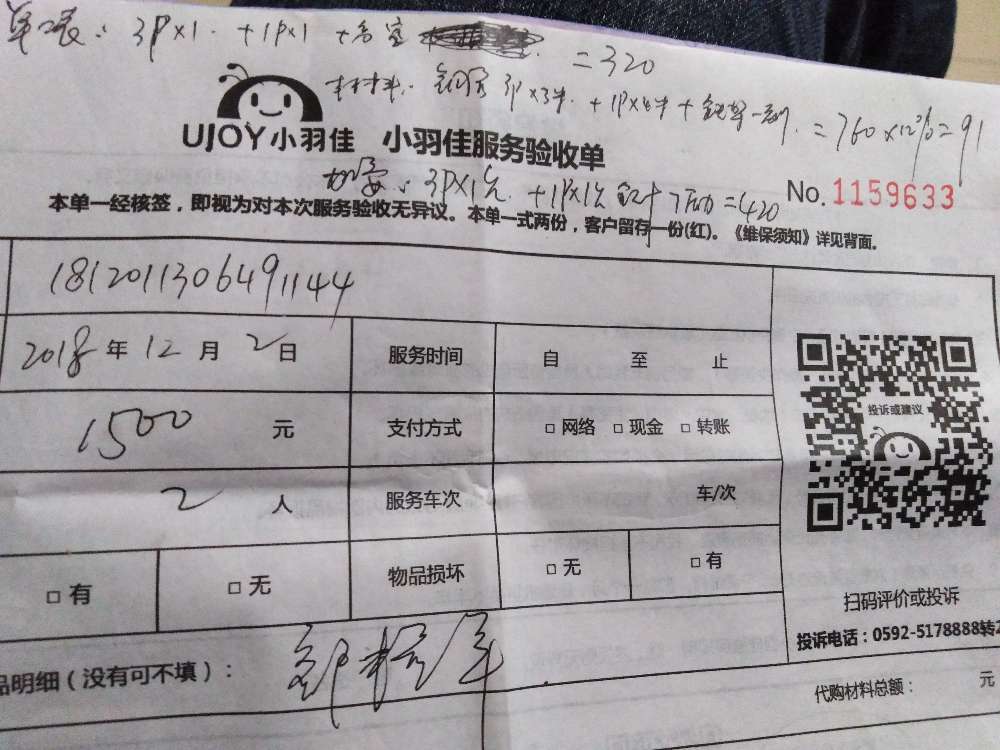 3P×1 + 1P×1 +
=320
材料: 3P×3米 + 1P×4米 +
=760×12%=91
UJOY小羽佳 小羽佳服务验收单
3P×1 + 1P×1 =420
No.1159633
本单一经核签，即视为对本次服务验收无异议。本单一式两份，客户留存一份(红)。《维保须知》详见背面。
1812011306491144
2018年12月2日 服务时间 自 至 止
1500 元 支付方式 □网络 □现金 □转账
投诉或建议
2 人 服务车次 车/次
□有 □无 物品损坏 □无 □有
扫码评价或投诉
投诉电话：0592-5178888转2
品明细（没有可不填）：
代购材料总额： 元